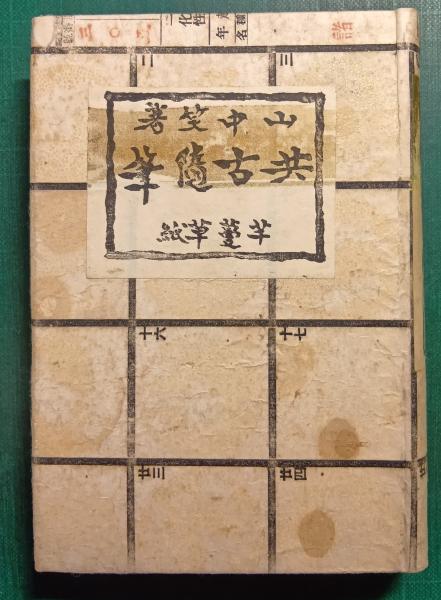 化性
年名
二
三
山中笑著
共古隨筆
芋蔓草紙
十六
十七
廿三
廿四